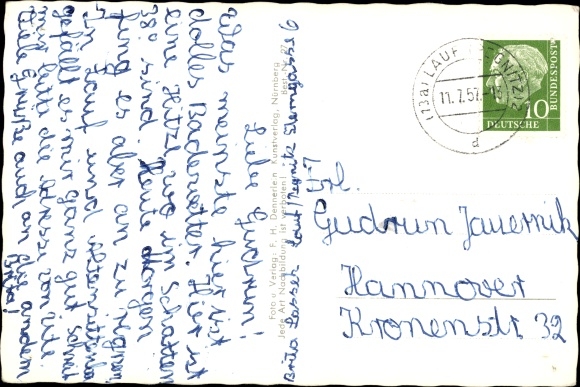 Liebe Gudrun!
Was meinste hier ist
dolles Badewetter. Hier ist
eine Hitze 206 im Schatten
38° sind. Heute Morgen
fing es aber an zu regnen.
In Lauf und
gefällt es mir ganz gut
mir bitte die Adresse von
Viele Grüße auch an die andern
Brita!
Foto u. Verlag: F. H. Dennerlein, Kunstverlag, Nürnberg
Jede Art Nachbildung ist verboten!
Best. Nr.
Lauf/Pegnitz
(13a) LAUF (PEGNITZ) 2
11.7.57.-18
d
10
DEUTSCHE
BUNDESPOST
Frl.
Gudrun Jauernik
Hannover
Kronenstr. 32